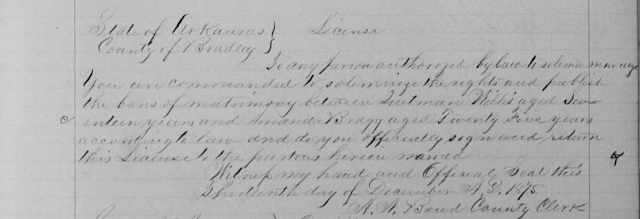 State of Arkansas } License
County of Bradley }
To any person authorized by law to solemn marriage
You are commanded to solemnize the rights and publish
the bans of matrimony between Willis aged Sev-
enteen years and Amanda Bragg aged Twenty Five years
according to law and do you officially sign and return
this License to the parties herein named
Witness my hand and Official Seal this
Thirteenth day of December A.D. 1875
County Clerk